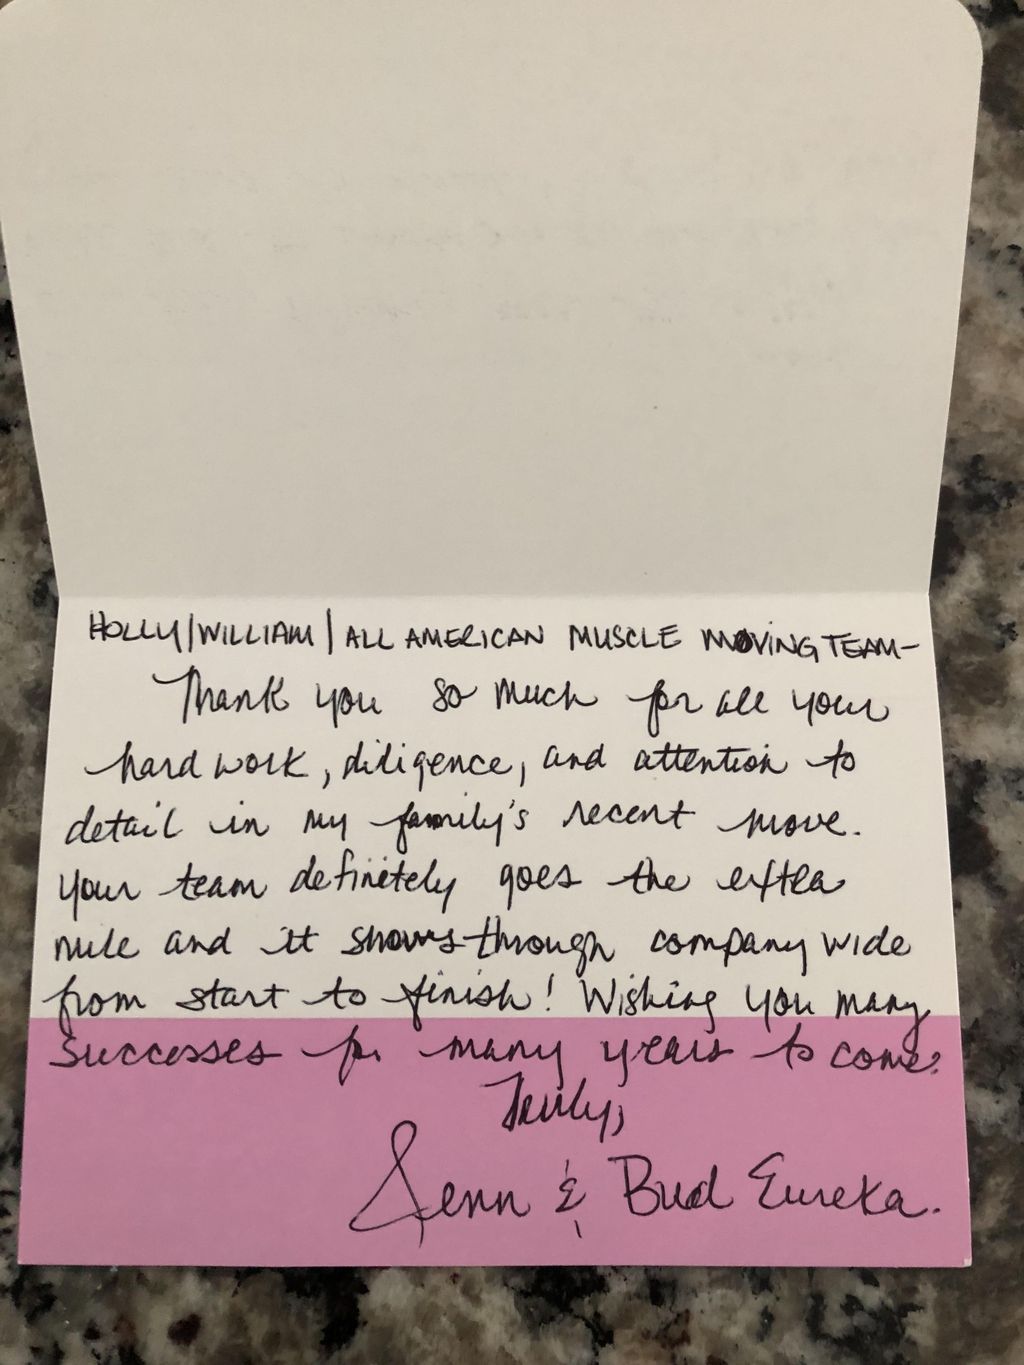 HOLLY/WILLIAM/ALL AMERICAN MUSCLE MOVING TEAM-
Thank you so much for all your
hard work, diligence, and attention to
detail in my family's recent move.
Your team definetely goes the extra
mile and it shows through company wide
from start to finish! Wishing you many
successes for many years to come.
Truly,
Jenn & Bud Eureka.